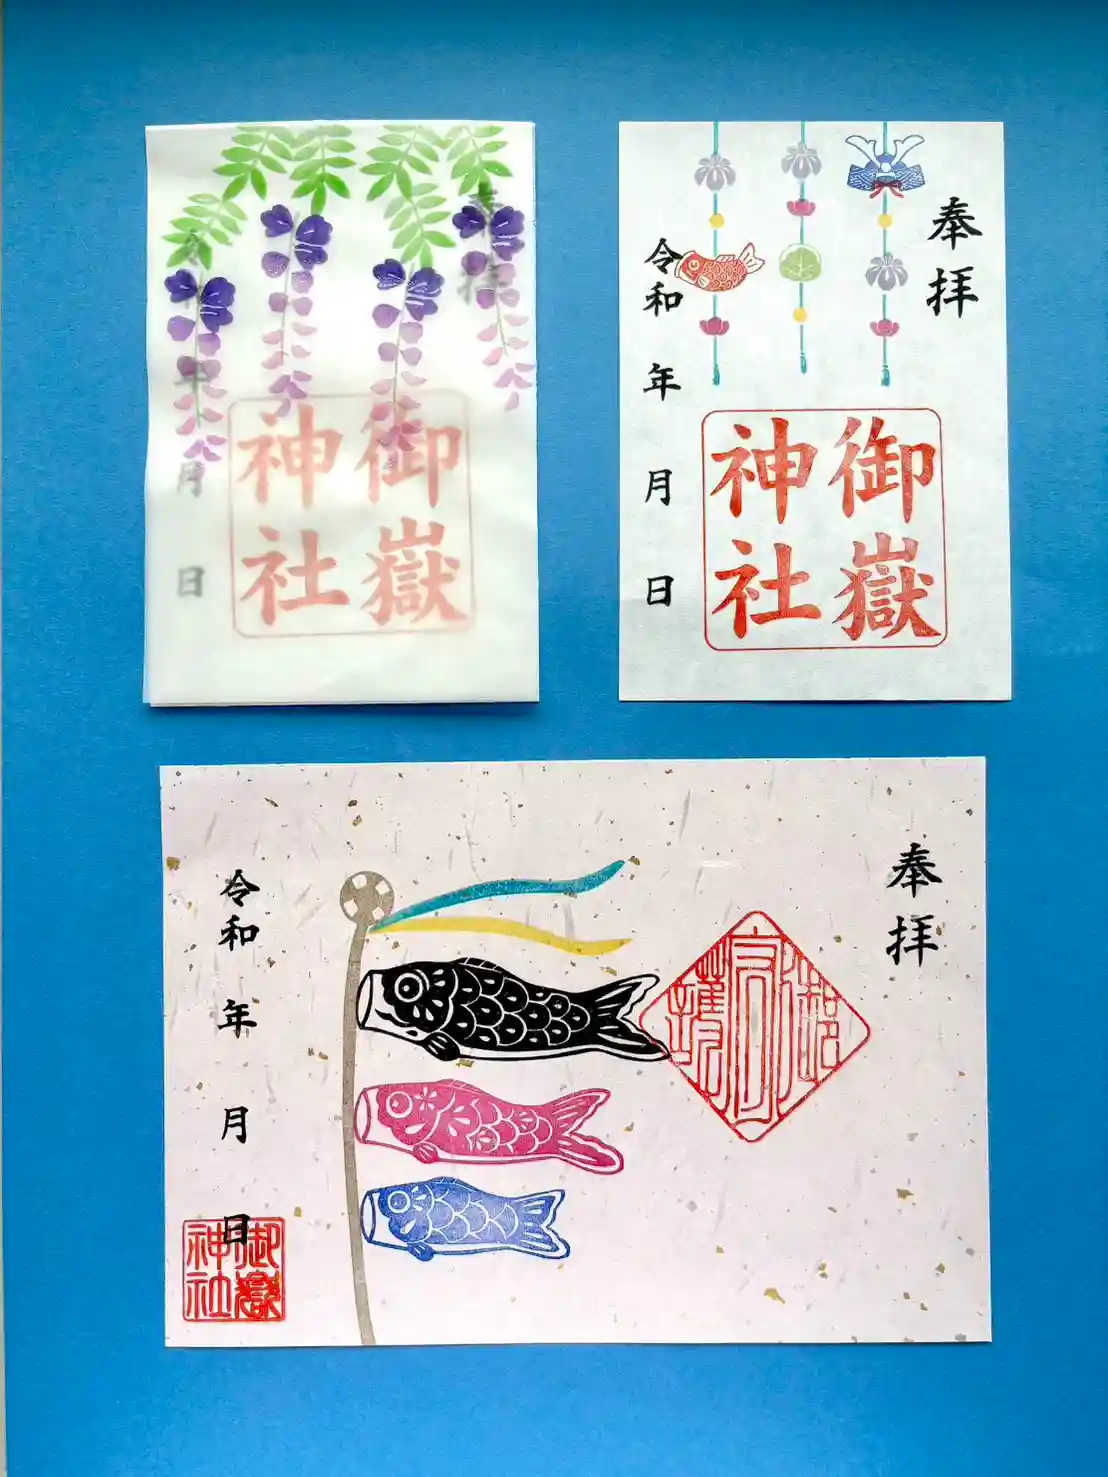 奉拝
御嶽
神社
令和 年 月 日
奉拝
御嶽
神社
令和 年 月 日
奉拝
令和 年 月 日
御嶽
神社